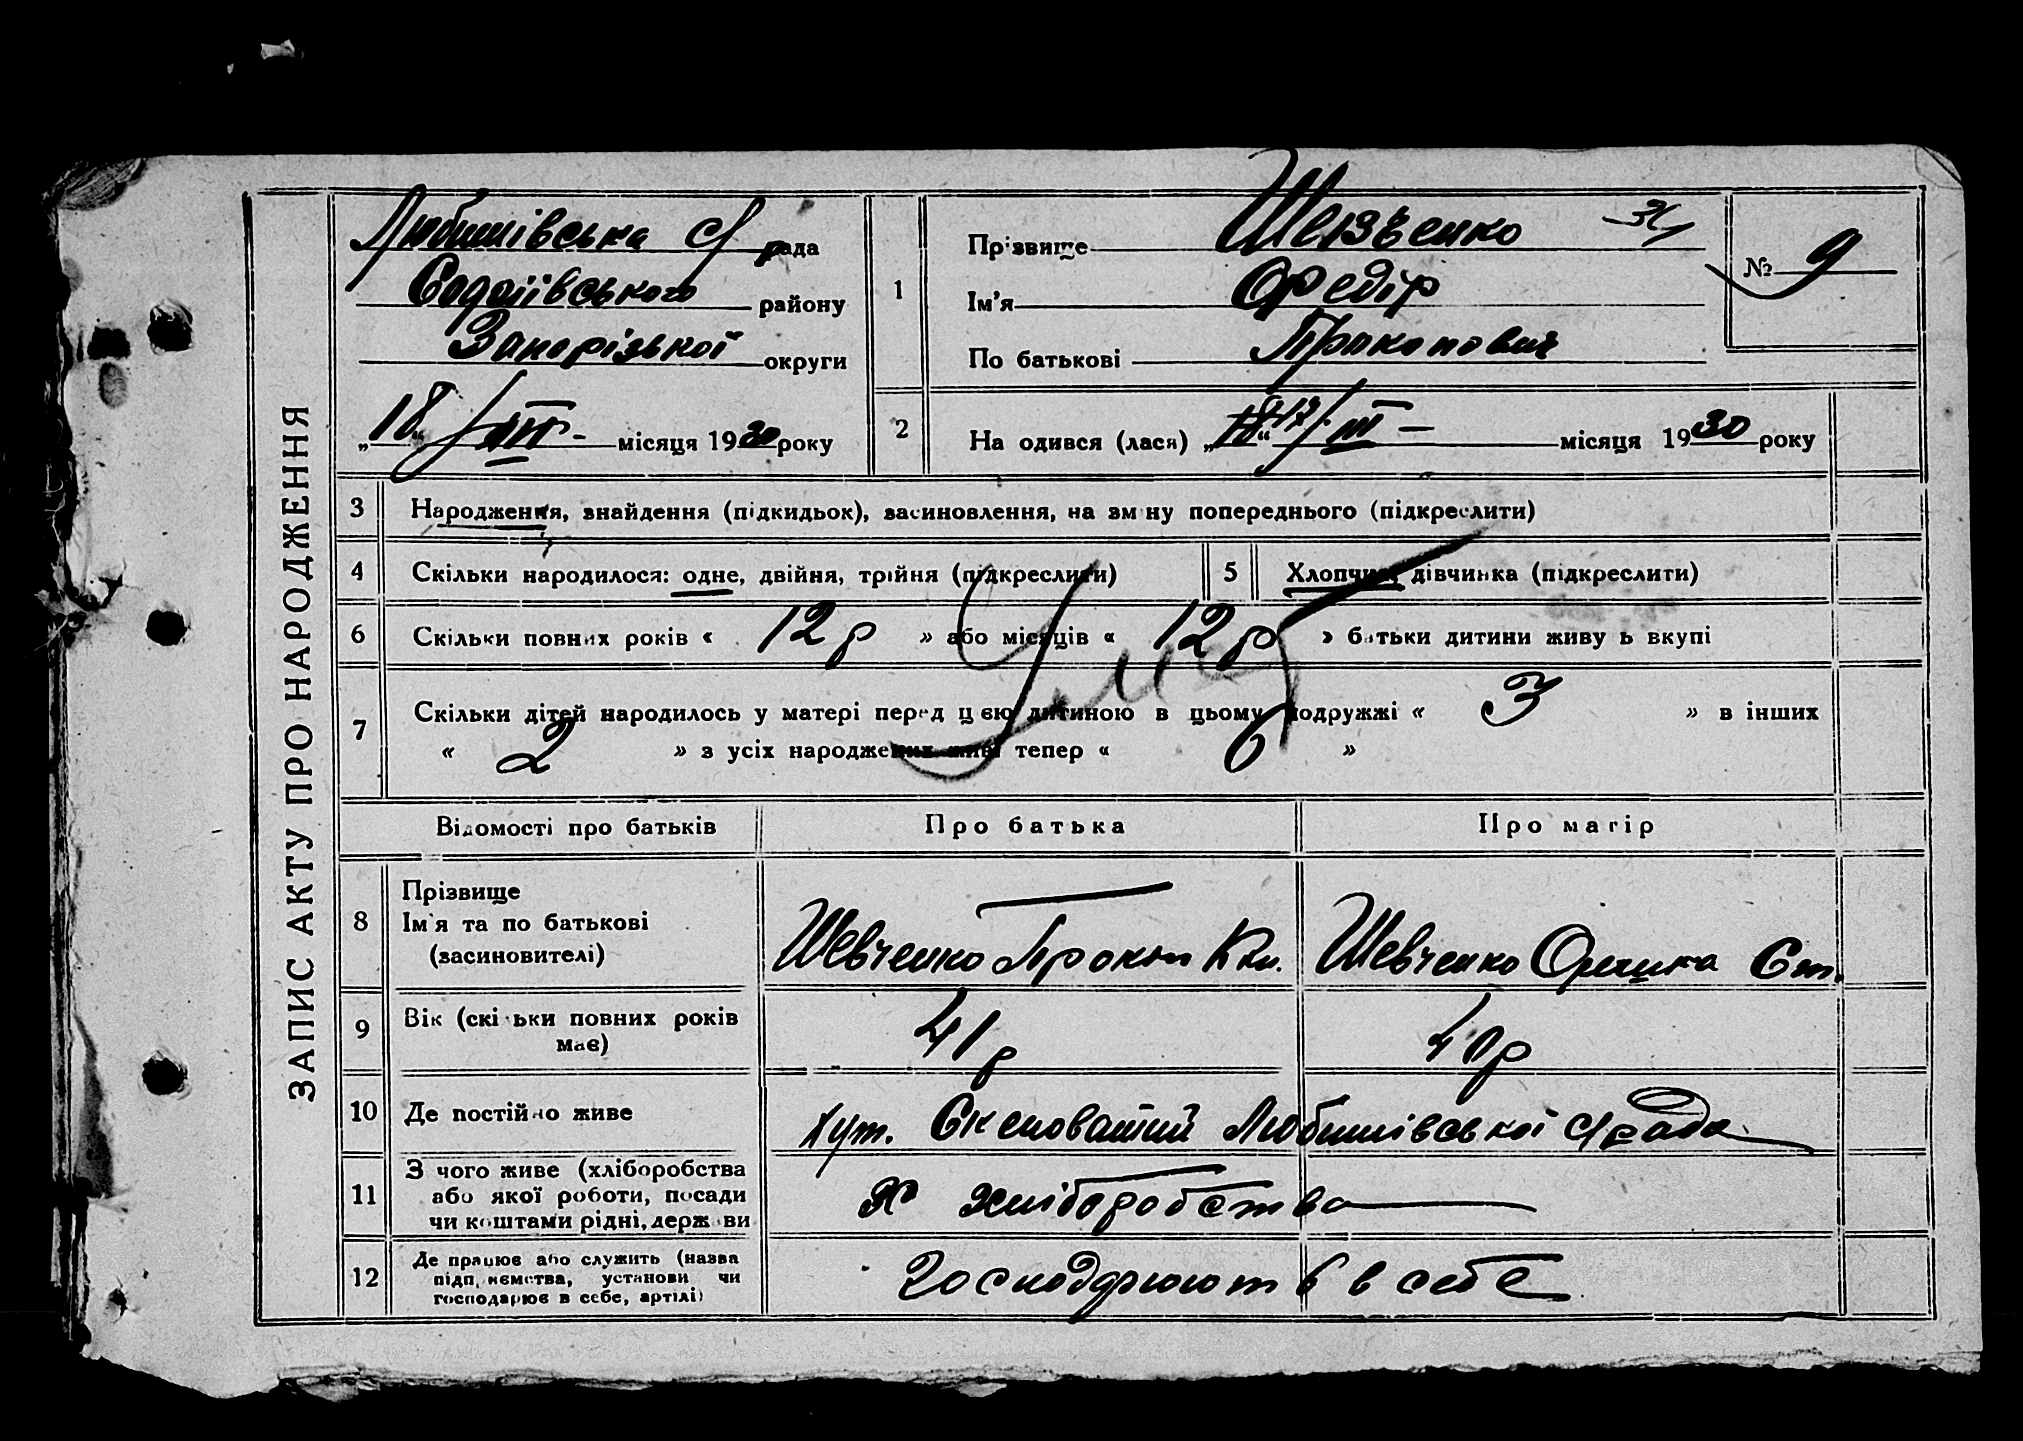 ЗАПИС АКТУ ПРО НАРОДЖЕННЯ
Любимівська с/рада
Софіївського району
Запорізької округи
„18“ III - місяця 1930 року
1
Прізвище Шевченко
Ім'я Федір
По батькові Прокопович
№ 9
2
На одився (лася) „17“ III - місяця 1930 року
3 Народження, знайдення (підкидьок), засиновлення, на зміну попереднього (підкреслити)
4 Скільки народилося: одне, двійня, трійня (підкреслити)
5 Хлопчик, дівчинка (підкреслити)
6 Скільки повних років « 12 р » або місяців « 12 р » батьки дитини живуть вкупі
7 Скільки дітей народилось у матері перед цією дитиною в цьому подружжі « 3 » в інших
« 2 » з усіх народжених живі тепер « 6 »
Відомості про батьків Про батька Про матір
8 Прізвище
Ім'я та по батькові
(засиновителі)
Шевченко Прокоп
Шевченко Ст.
9 Вік (скільки повних років
має)
41 р
40 р
10 Де постійно живе
хут. Скеловатий Любимівської с/рада
11 З чого живе (хліборобства
або якої роботи, посади
чи коштами рідні, держави
Х хліборобства
12 Де працює або служить (назва
підприємства, установи чи
господарює в себе, артілі)
господрюють в себе